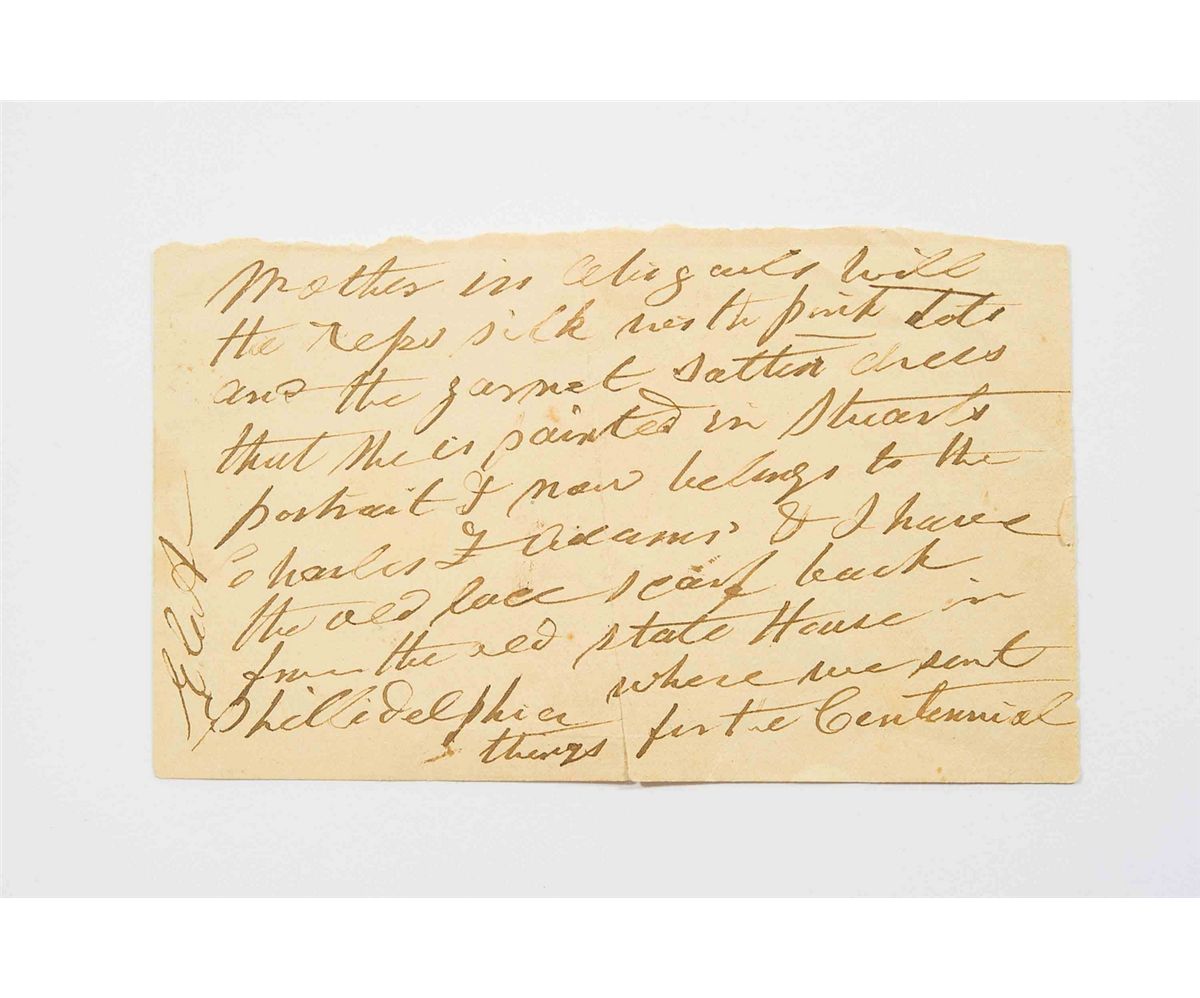 Mother in Abigails will
the Reps silk with pink dots
and the garnet sattin dress
that she is painted in Stuarts
portrait & now belongs to the
Charles F Adams' & I have
the old lace scarf back
from the old state House in
Philledelphia where we sent
things for the Centennial